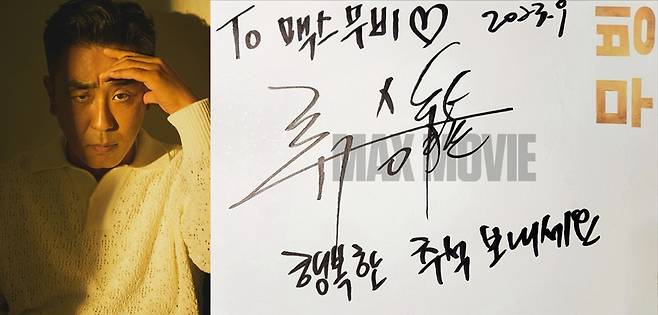 To 맥스무비♡ 2023.9
류승
MAX MOVIE
행복한 추석 보내세요